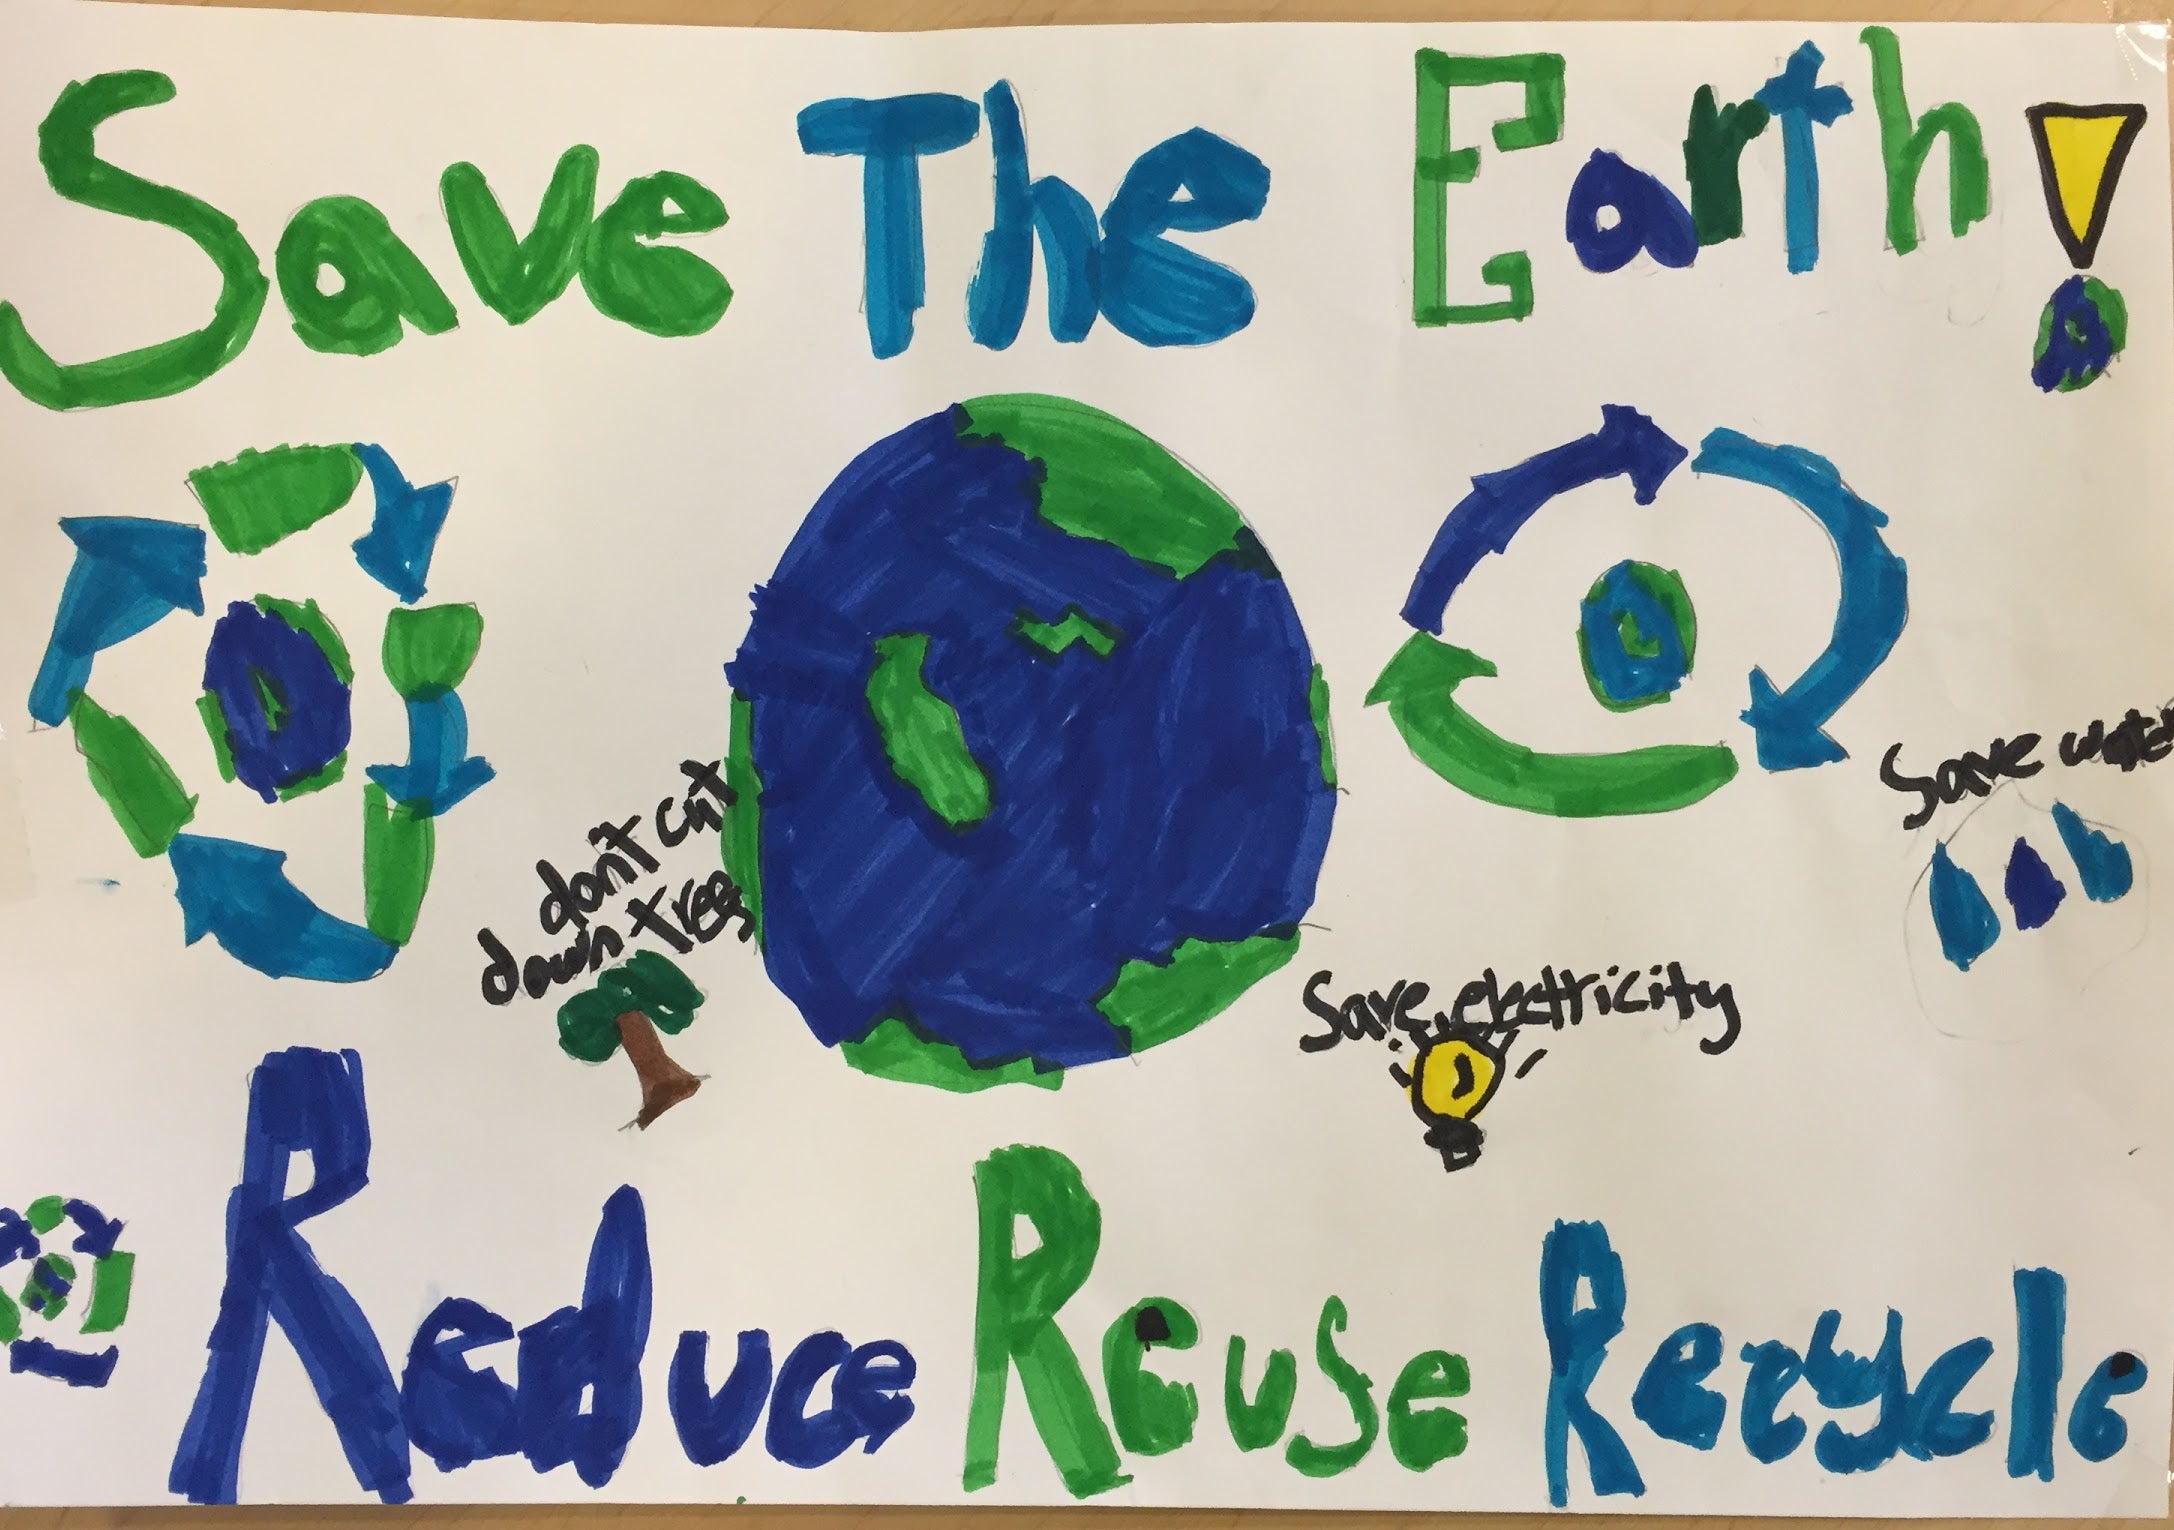 Save The Earth!
don't cut
down trees
Save water
Save electricity
Reduce Reuse Recycle